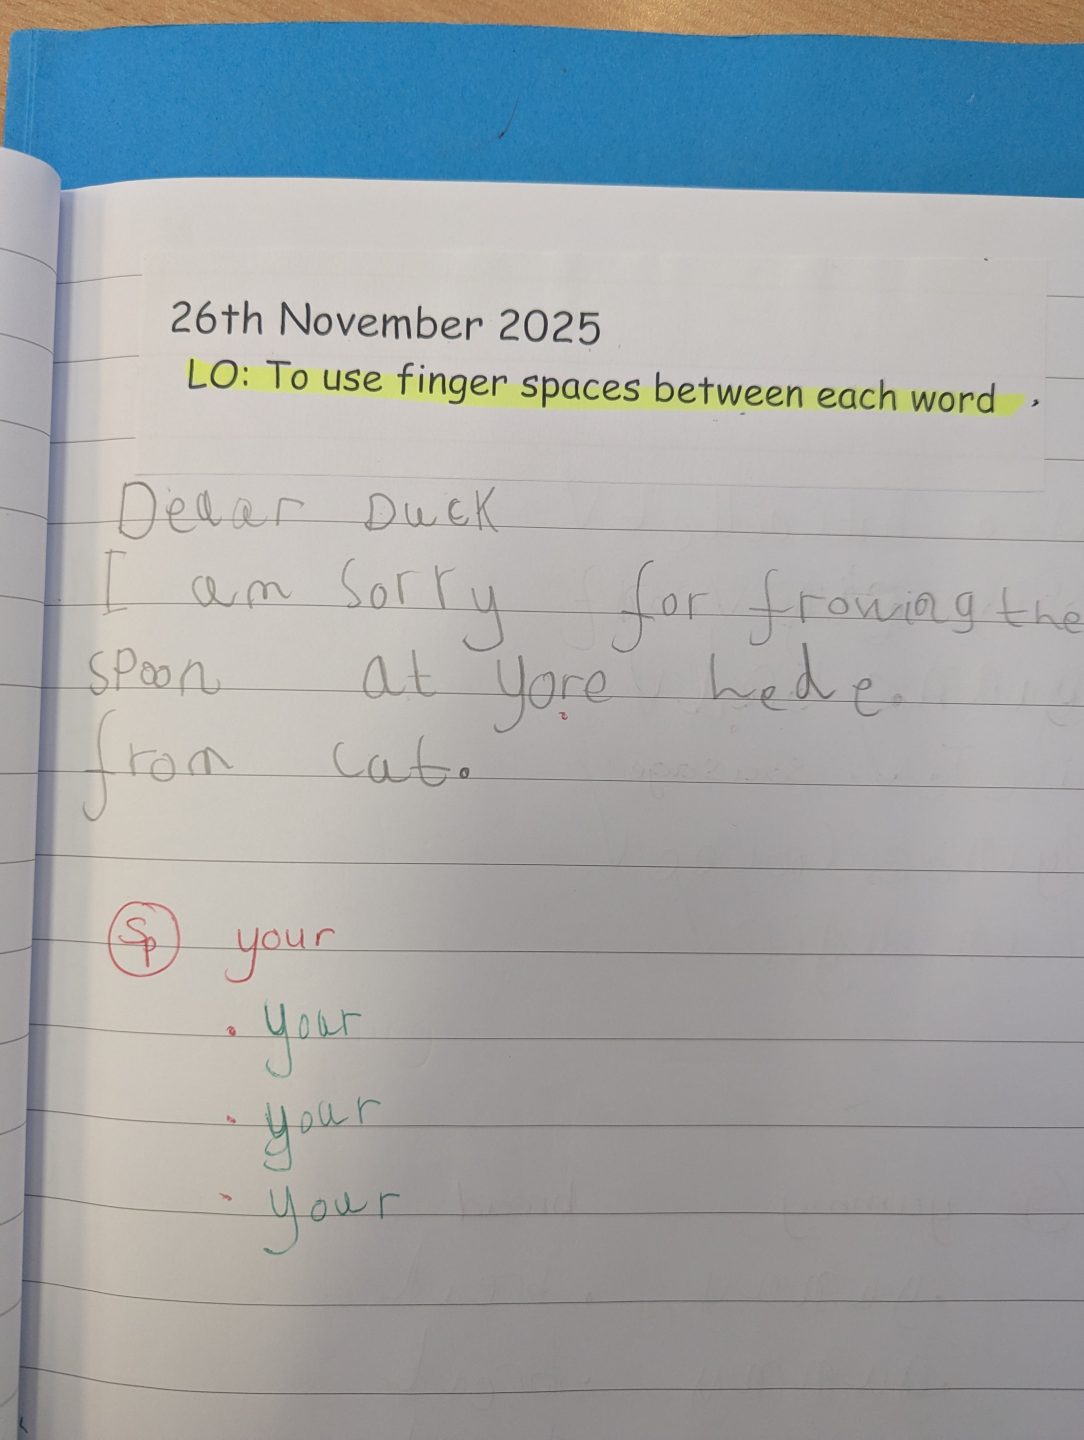 26th November 2025
LO: To use finger spaces between each word
Deaar Duck
I am Sorry for frowing the
spoon at yore hede.
from cat.
Sp your
your
your
your